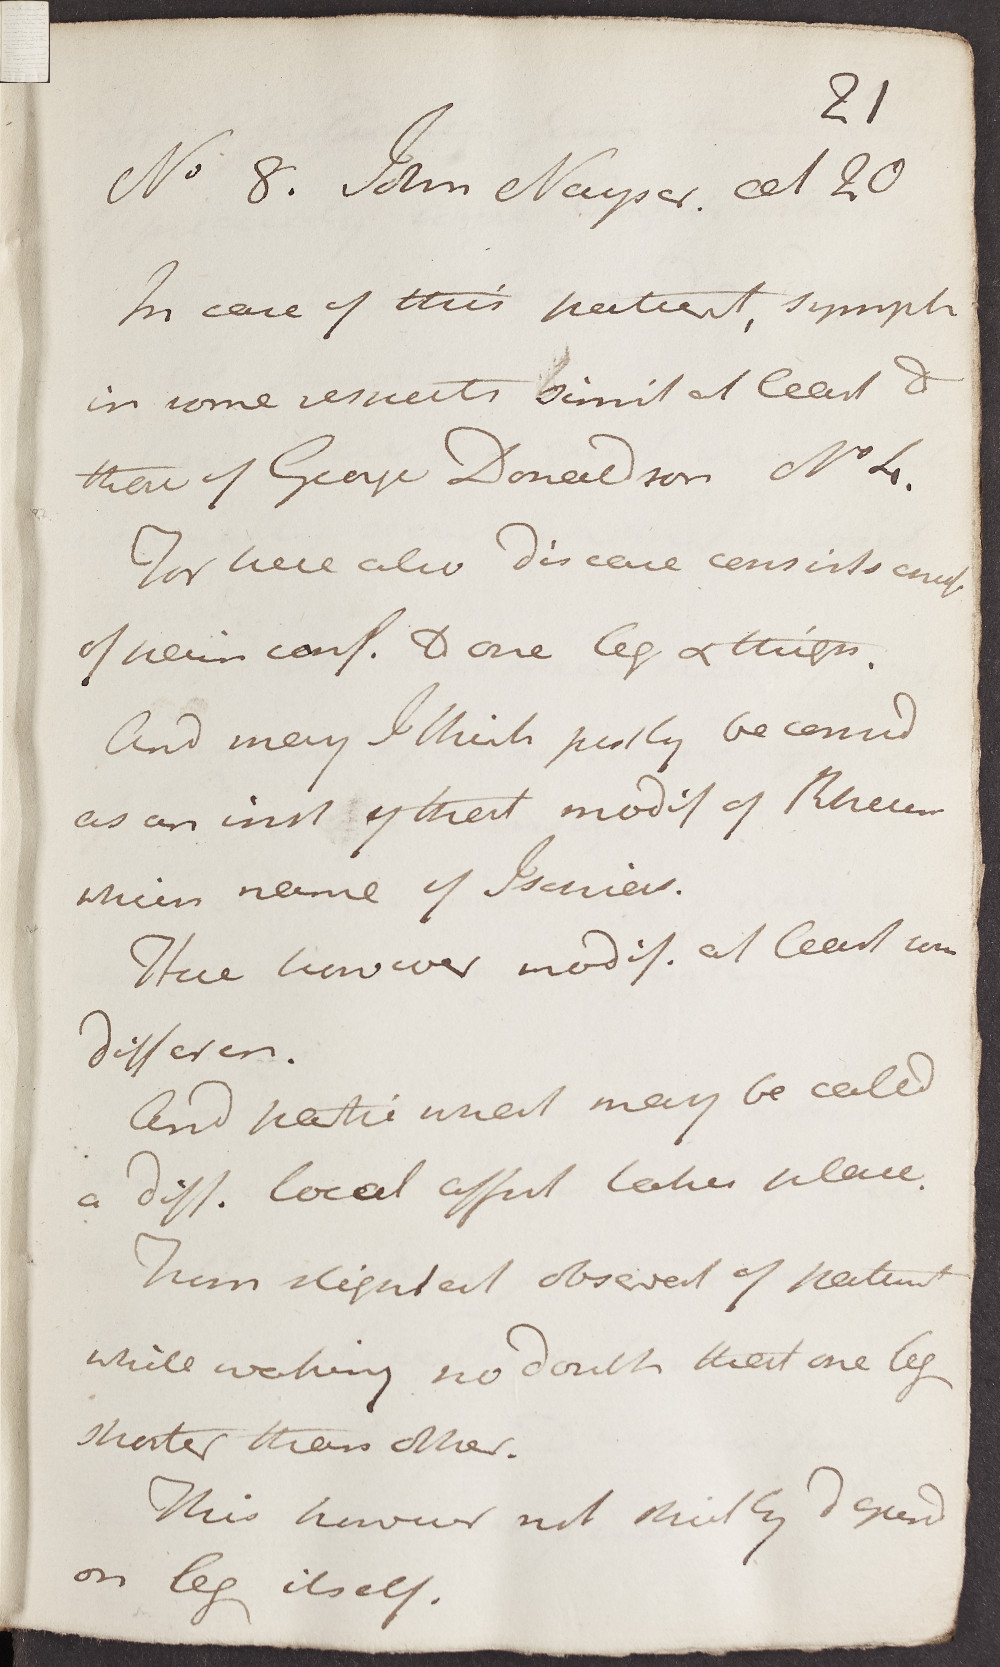 21
No 8. John Nayser. aet 20
In case of this patient, sympt
in some respects simil at least to
those of George Donaldson No 4.
For here also disease consists
of pain conf. to one leg & thigh.
And may I think justly be consid
as an inst of that modif of Rheum
which name of Ischias.
Here however modif. at least som
differen.
And partic what may be called
a diff. local affect takes place.
From slightest observat of patient
while walking no doubt that one leg
shorter than other.
This however not strictly depend
on leg itself.